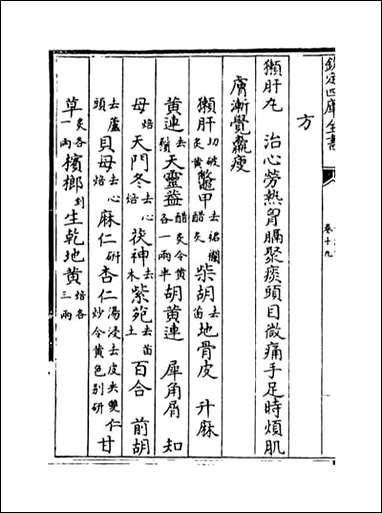 欽定四庫全書
卷十九
方
獺肝丸 治心勞熱胷膈聚痰頭目微痛手足時煩肌
膚漸覺羸瘦
獺肝切破炙黄鼈甲去裙襴醋炙柴胡去苗地骨皮 升麻
黄連去鬚天靈葢醋炙令黄各一兩半胡黄連 犀角屑 知
母焙天門冬去心焙茯神去木紫菀去苗土百合 前胡
去蘆頭貝母去心焙麻仁研杏仁湯浸去皮尖雙仁炒令黄色别研甘
草炙各一兩檳榔剉生乾地黄焙各三兩